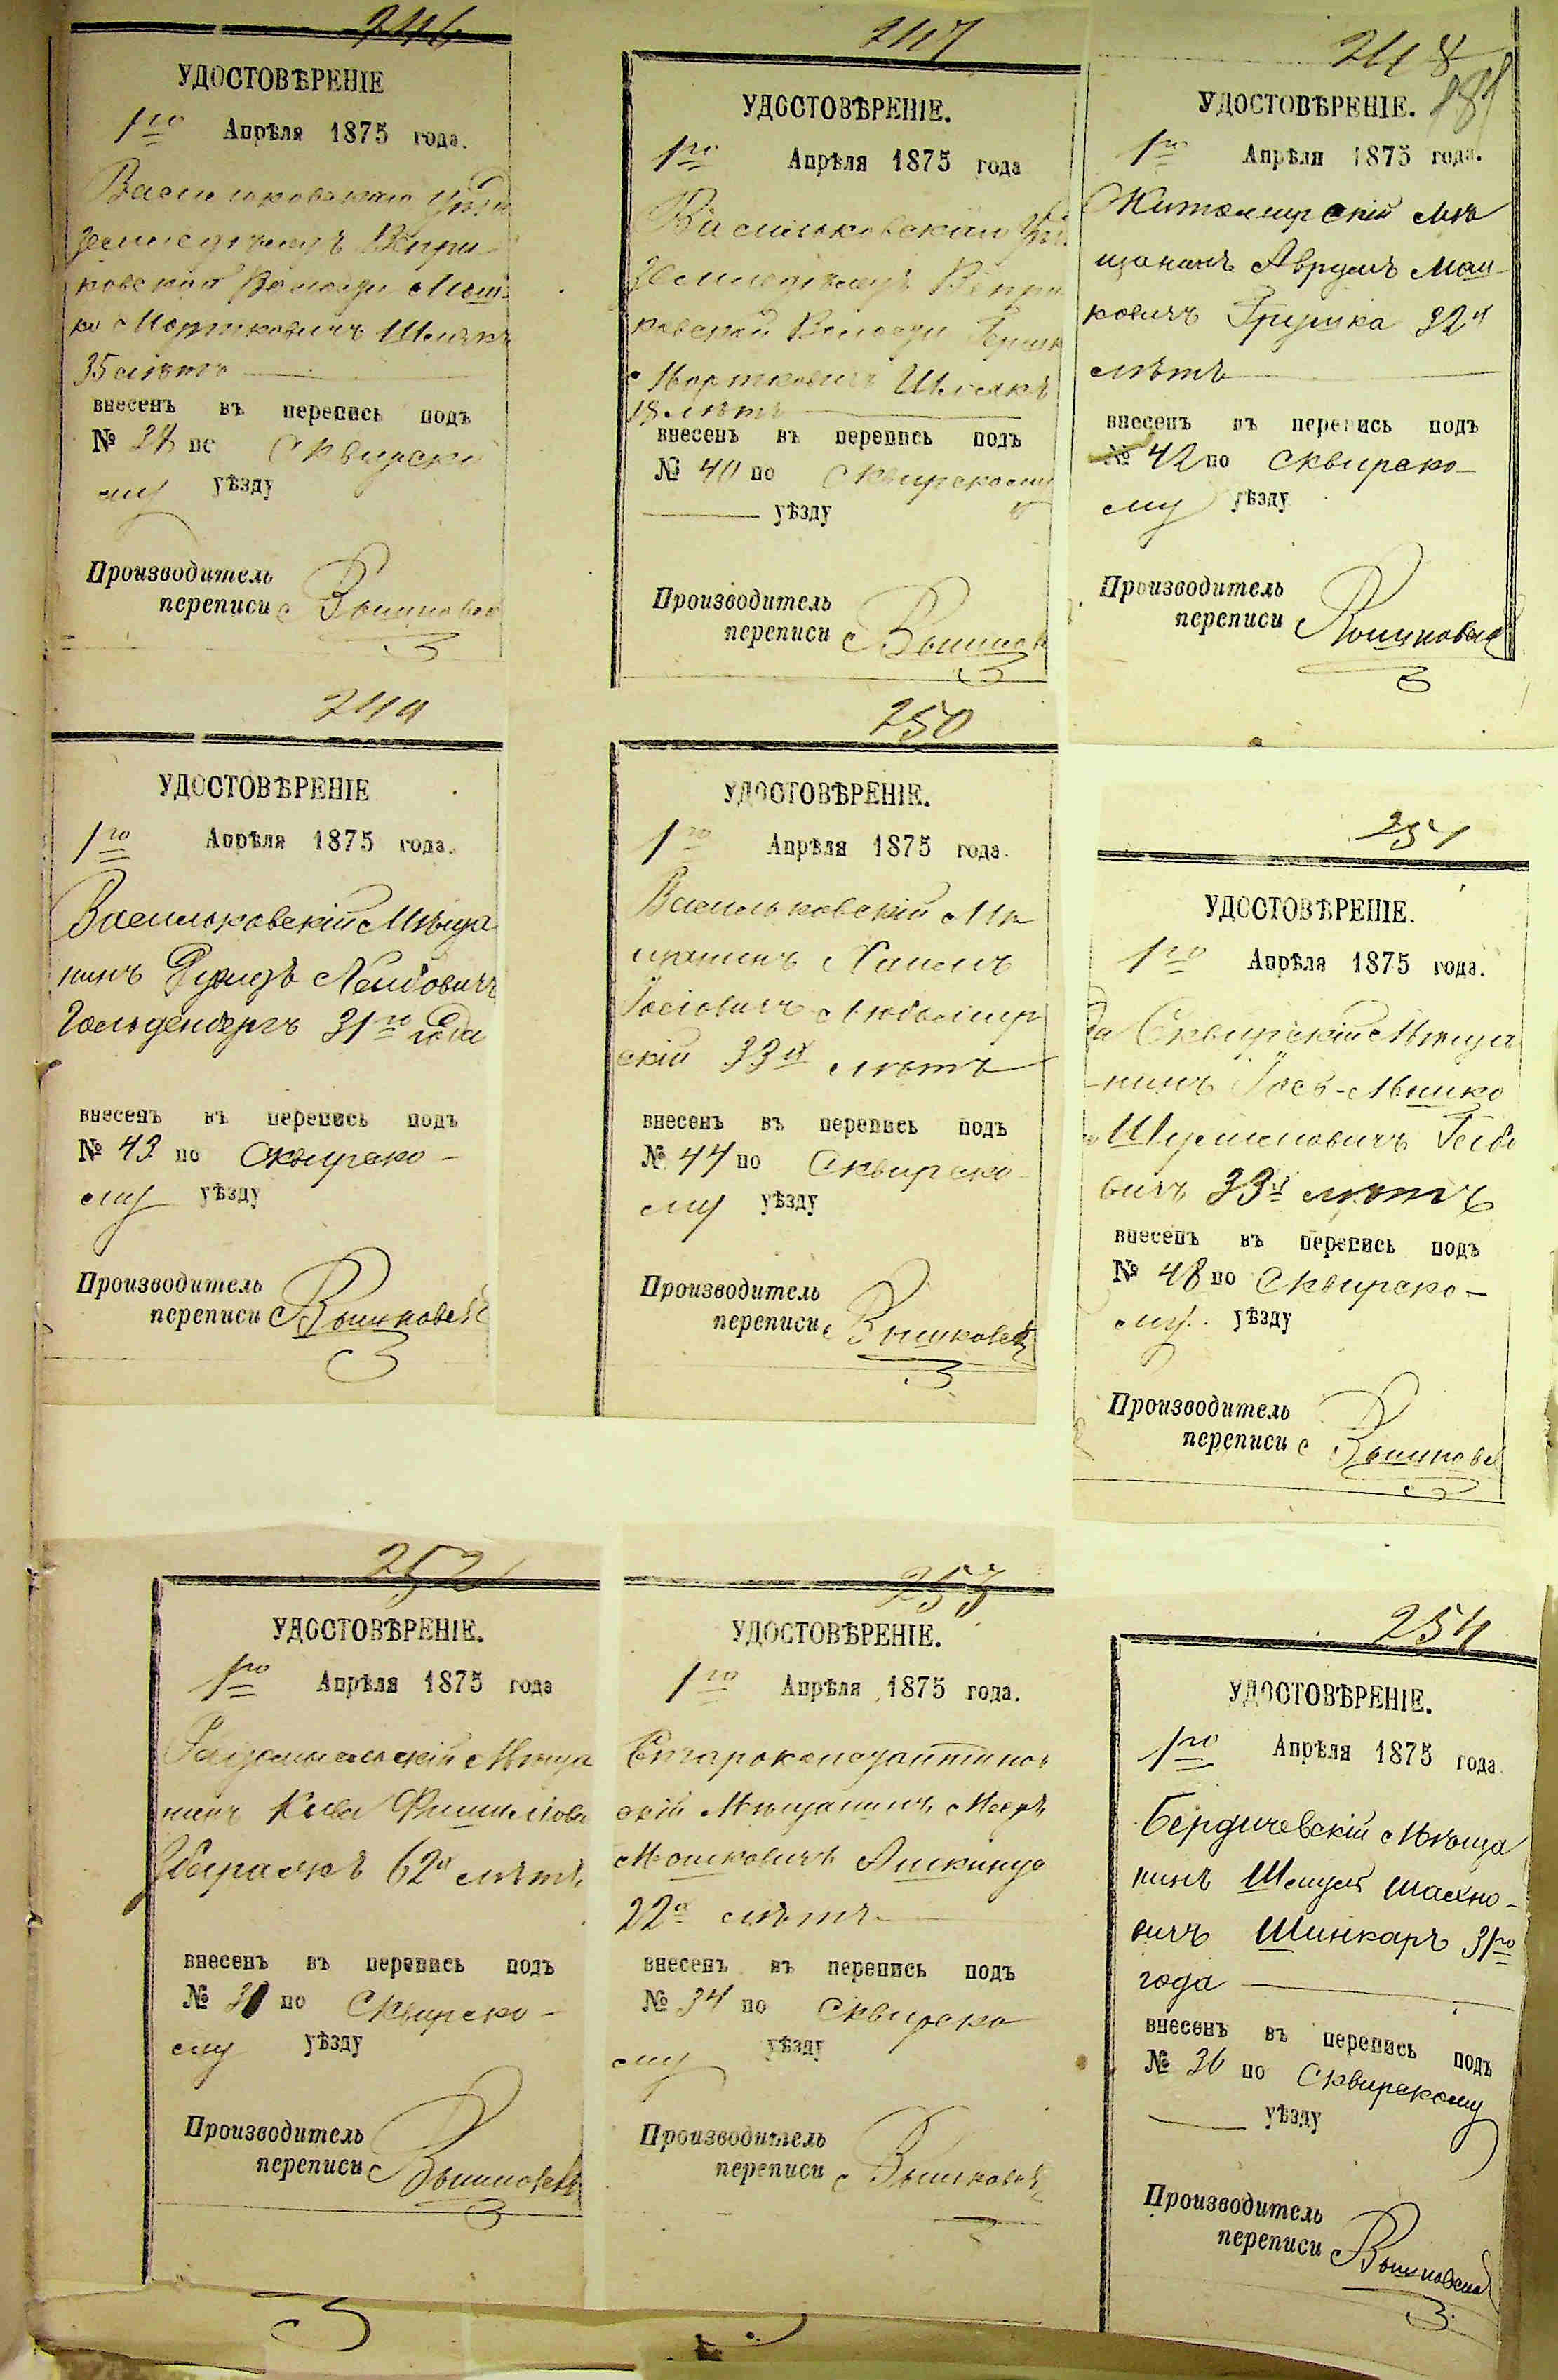 246
УДОСТОВѢРЕНІЕ
1го Апрѣля 1875 года.
Васильковскаго Уѣзда
Земледѣлецъ Вепри
ковской Волости Мош-
ко Мортковичъ Шлякъ
35 лѣтъ
внесенъ въ перепись подъ
№ по Сквирско
му уѣзду
Производитель
переписи Вышковск
247
УДОСТОВѢРЕНІЕ.
1го Апрѣля 1875 года
Васильковскаго
Земледѣлецъ Вепри
ковской Волости Гершк
Мортковичъ Шлякъ
18 лѣтъ
внесенъ въ перепись подъ
№ 40 по Сквирскому
уѣзду
Производитель
переписи Вышков
248
УДОСТОВѢРЕНІЕ.
1го Апрѣля 1875 года.
Житомирскій Мѣ
щанинъ Аврумъ Мош-
ковичъ Грушка 32х
лѣтъ
внесенъ въ перепись подъ
№ 42 по Сквирско-
му уѣзду
Производитель
переписи Вышковск
249
УДОСТОВѢРЕНІЕ
1го Апрѣля 1875 года.
Васильковскій Мѣща
нинъ Лейбовичъ
Гольденбергъ 31го года
внесенъ въ перепись подъ
№ 43 по Сквирско-
му уѣзду
Производитель
переписи Вышковск
250
УДОСТОВѢРЕНІЕ.
1го Апрѣля 1875 года.
Васильковскій Мѣ
щанинъ Хаимъ
Іосіовичъ Любомир
скій 33х лѣтъ
внесенъ въ перепись подъ
№ 44 по Сквирско-
му уѣзду
Производитель
переписи Вышковск
251
УДОСТОВѢРЕНІЕ.
1го Апрѣля 1875 года.
Сквирскій Мѣща
нинъ Іось-Мошко
Шулимовичъ Лейбо
вичъ 33х лѣтъ
внесенъ въ перепись подъ
№ 48 по Сквирско-
му уѣзду
Производитель
переписи Вышковск
252
УДОСТОВѢРЕНІЕ.
1го Апрѣля 1875 года
Радомысльскій Мѣща
нинъ Кива Фишиліови
62х лѣтъ
внесенъ въ перепись подъ
№ по Сквирско-
му уѣзду
Производитель
переписи Вышковскій
253
УДОСТОВѢРЕНІЕ.
1го Апрѣля 1875 года.
Староконстантинов
скій Мѣщанинъ Мееръ
Мошковичъ Ашкинуд
22х лѣтъ
внесенъ въ перепись подъ
№ 34 по Сквирско
му уѣзду
Производитель
переписи Вышковск
254
УДОСТОВѢРЕНІЕ.
1го Апрѣля 1875 года.
Бердичевскій Мѣща
нинъ Шмуль Шахно-
вичъ Шинкаръ 31го
года
внесенъ въ перепись подъ
№ 36 по Сквирскому
уѣзду
Производитель
переписи Вышковск